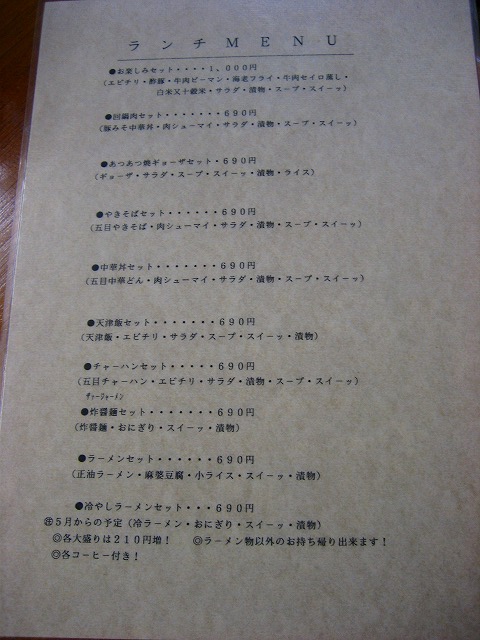 ランチMENU
●お楽しみセット・・・・1,000円
(エビチリ・酢豚・牛肉ピーマン・海老フライ・牛肉セイロ蒸し・
白米又十穀米・サラダ・漬物・スープ・スイーツ)
●回鍋肉セット・・・・・・・690円
(豚みそ中華丼・肉シューマイ・サラダ・漬物・スープ・スイーツ)
●あつあつ焼ギョーザセット・690円
(ギョーザ・サラダ・スープ・スイーツ・漬物・ライス)
●やきそばセット・・・・・・690円
(五目やきそば・肉シューマイ・サラダ・漬物・スープ・スイーツ)
●中華丼セット・・・・・・・690円
(五目中華どん・肉シューマイ・サラダ・漬物・スープ・スイーツ)
●天津飯セット・・・・・・・690円
(天津飯・エビチリ・サラダ・スープ・スイーツ・漬物)
●チャーハンセット・・・・・690円
(五目チャーハン・エビチリ・サラダ・漬物・スープ・スイーツ)
ヂャージャーメン
●炸醤麺セット・・・・・・・690円
(炸醤麺・おにぎり・スイーツ・漬物)
●ラーメンセット・・・・・・690円
(正油ラーメン・麻婆豆腐・小ライス・スイーツ・漬物)
●冷やしラーメンセット・・・690円
5月からの予定(冷ラーメン・おにぎり・スイーツ・漬物)
◎各大盛りは210円増! ◎ラーメン物以外のお持ち帰り出来ます!
◎各コーヒー付き!